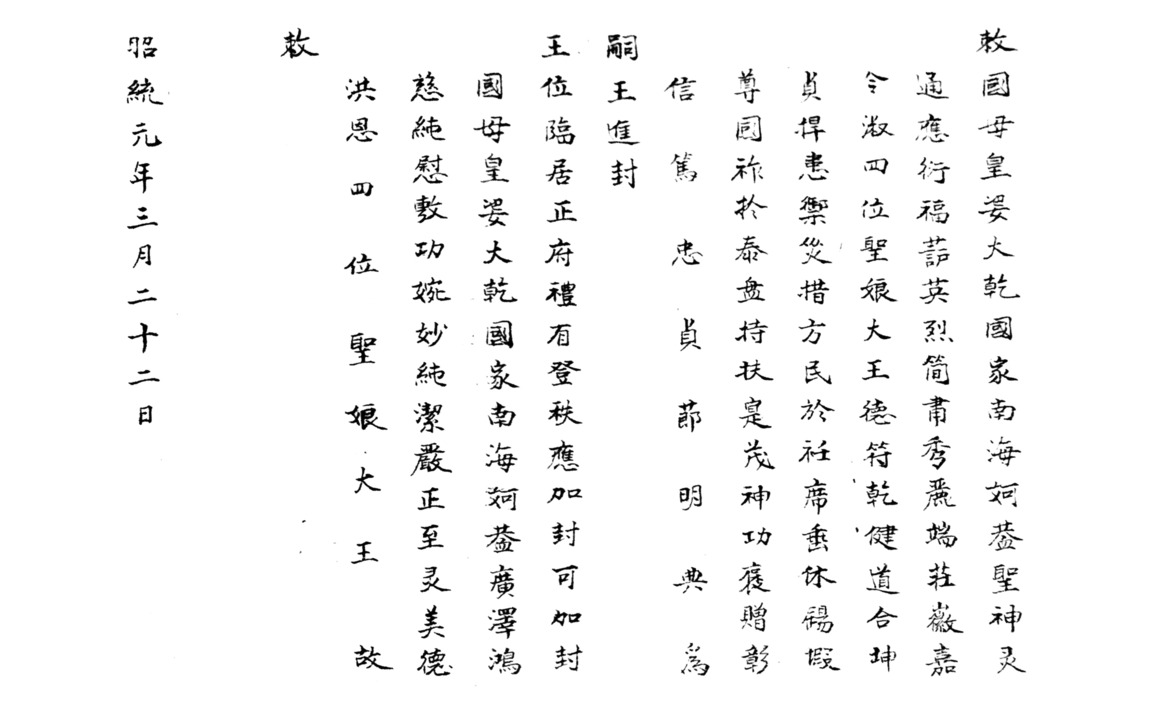 敕國母皇婆大乾國家南海妸蓋聖神灵
通應衍福諎英烈简肅秀麗端莊薇嘉
令淑四位聖娘大王德符乾健道合坤
貞捍患禦災措方民於衽席垂休錫嘏
尊囯祚扵泰盘持扶寔茂神功褒贈彰
信篤忠貞莭明典為
嗣王進封
王位臨居正府禮有登秩應加封可加封
國母皇婆大乾國家南海妸蓋廣澤鴻
慈純慰敷功婉妙純潔嚴正至灵美德
洪恩四位聖娘大王故
敕
昭統元年三月二十二日